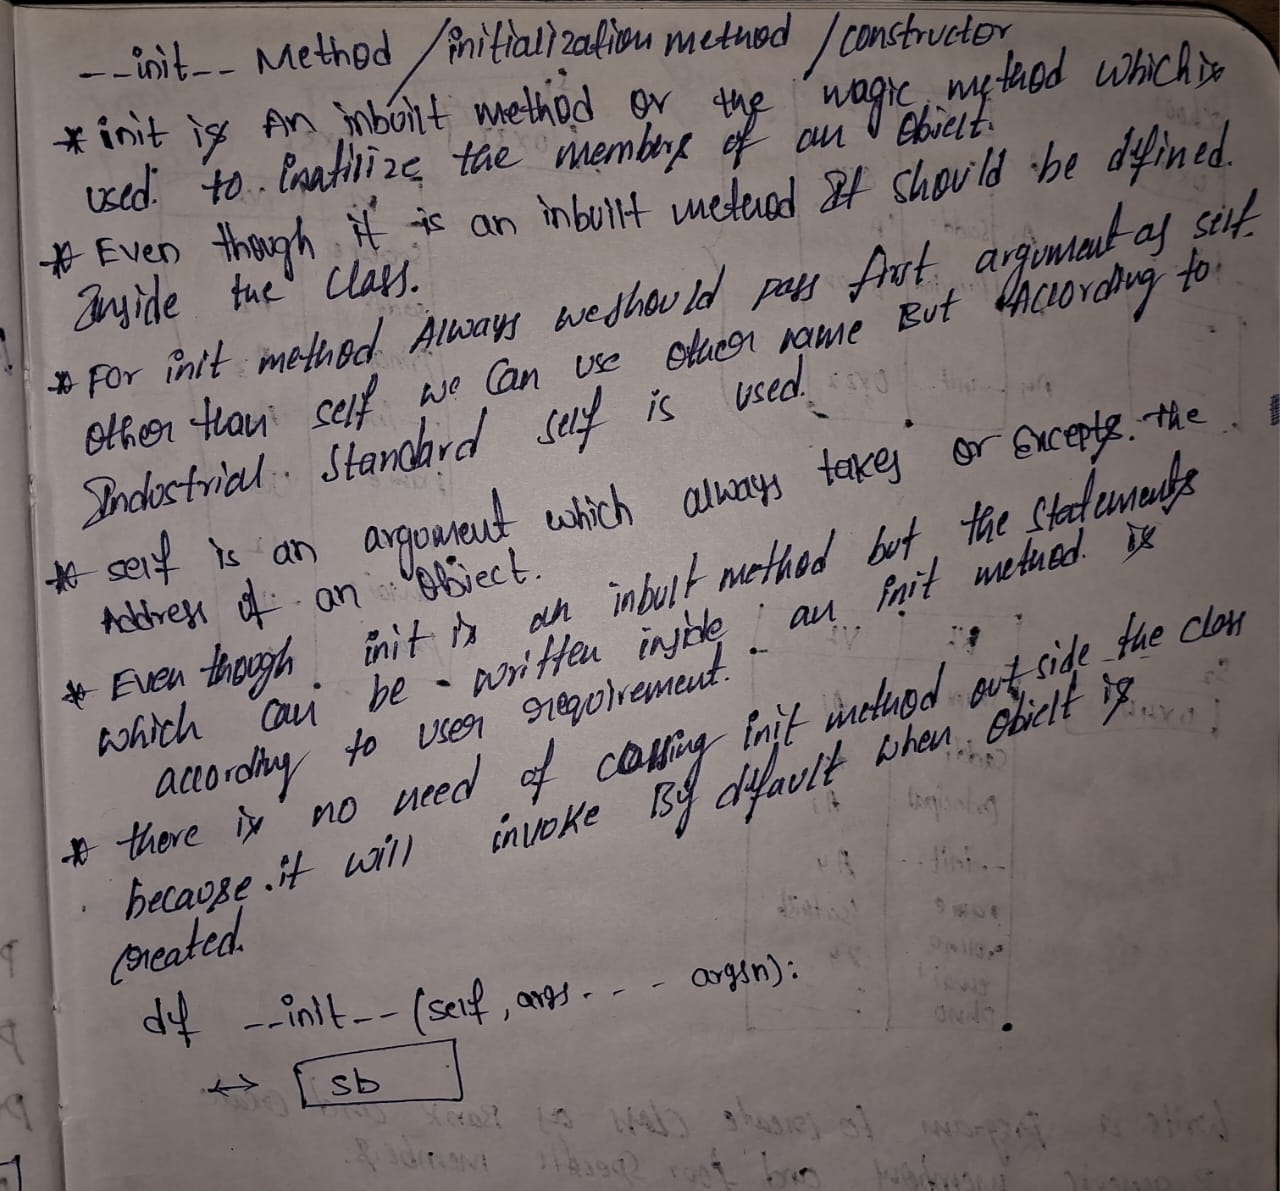 __init__ Method /initialization method /constructor
* init is An inbuilt method or the magic method which is
used to Inatilize the members of an Object.
* Even though it is an inbuilt method It should be defined.
Inside the class.
* For init method Always we should pass first argument as self.
other than self we can use other name But According to
Industrial Standard self is used.
* self is an argument which always takes or Excepts. the
Address of an Object.
* Even though init is an inbult method but the statements
which can be written inside an init method is
according to user requirement.
* there is no need of calling init method out side the class
because it will invoke By default when object is
created.
def __init__(self, args - - - argsn):
↔ sb